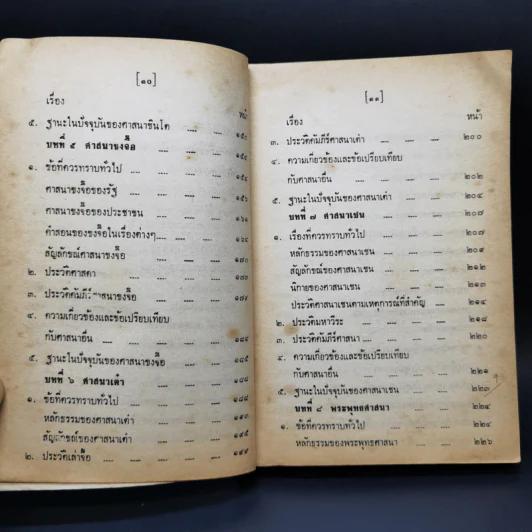 [๑๐]
เรื่อง หน้า
๕. ฐานะในปัจจุบันของศาสนาชินโต .... ....
บทที่ ๕ ศาสนาขงจื๊อ .... ....
๑. ข้อที่ควรทราบทั่วไป .... ....
ศาสนาขงจื๊อของรัฐ .... .... ๑๕๖
ศาสนาขงจื๊อของประชาชน .... ....
คำสอนของขงจื๊อในเรื่องต่างๆ.... .... .... ๑๖๔
สัญลักษณ์ศาสนาขงจื๊อ .... ....
๒. ประวัติศาสดา .... .... ....
๓. ประวัติคัมภีร์ศาสนาขงจื๊อ .... .... ๑๗๔
๔. ความเกี่ยวข้องและข้อเปรียบเทียบ
กับศาสนาอื่น .... .... .... ๑๘๔
๕. ฐานะในปัจจุบันของศาสนาขงจื๊อ .... ....
บทที่ ๖ ศาสนาเต๋า .... .... ....
๑. ข้อที่ควรทราบทั่วไป .... .... ....
หลักธรรมของศาสนาเต๋า .... ....
สัญลักษณ์ของศาสนาเต๋า .... .... ๑๙๕
๒. ประวัติเล่าจื๊อ .... .... .... ....
[๑๑]
เรื่อง หน้า
๓. ประวัติคัมภีร์ศาสนาเต๋า .... .... ๒๐๐
๔. ความเกี่ยวข้องและข้อเปรียบเทียบ
กับศาสนาอื่น .... .... .... ๒๐๒
๕. ฐานะในปัจจุบันของศาสนาเต๋า .... .... ๒๐๔
บทที่ ๗ ศาสนาเชน .... .... ๒๐๗
๑. เรื่องที่ควรทราบทั่วไป .... .... .... ๒๐๗
หลักธรรมของศาสนาเชน .... .... ๒๐๙
สัญลักษณ์ของศาสนาเชน .... .... ๒๑๒
นิกายของศาสนาเชน .... .... ๒๑๓
ประวัติศาสนาเชนตามเหตุการณ์ที่สำคัญ .... ๒๑๔
๒. ประวัติมหาวีระ .... .... .... .... ๒๑๘
๓. ประวัติคัมภีร์ศาสนา .... .... .... ๒๒๐
๔. ความเกี่ยวข้องและข้อเปรียบเทียบ
กับศาสนาอื่น .... .... .... ๒๒๑
๕. ฐานะในปัจจุบันของศาสนาเชน .... .... ๒๒๓
บทที่ ๘ พระพุทธศาสนา .... .... ๒๒๔
๑. ข้อที่ควรทราบทั่วไป .... .... .... ๒๒๔
หลักธรรมของพระพุทธศาสนา .... .... ๒๒๖